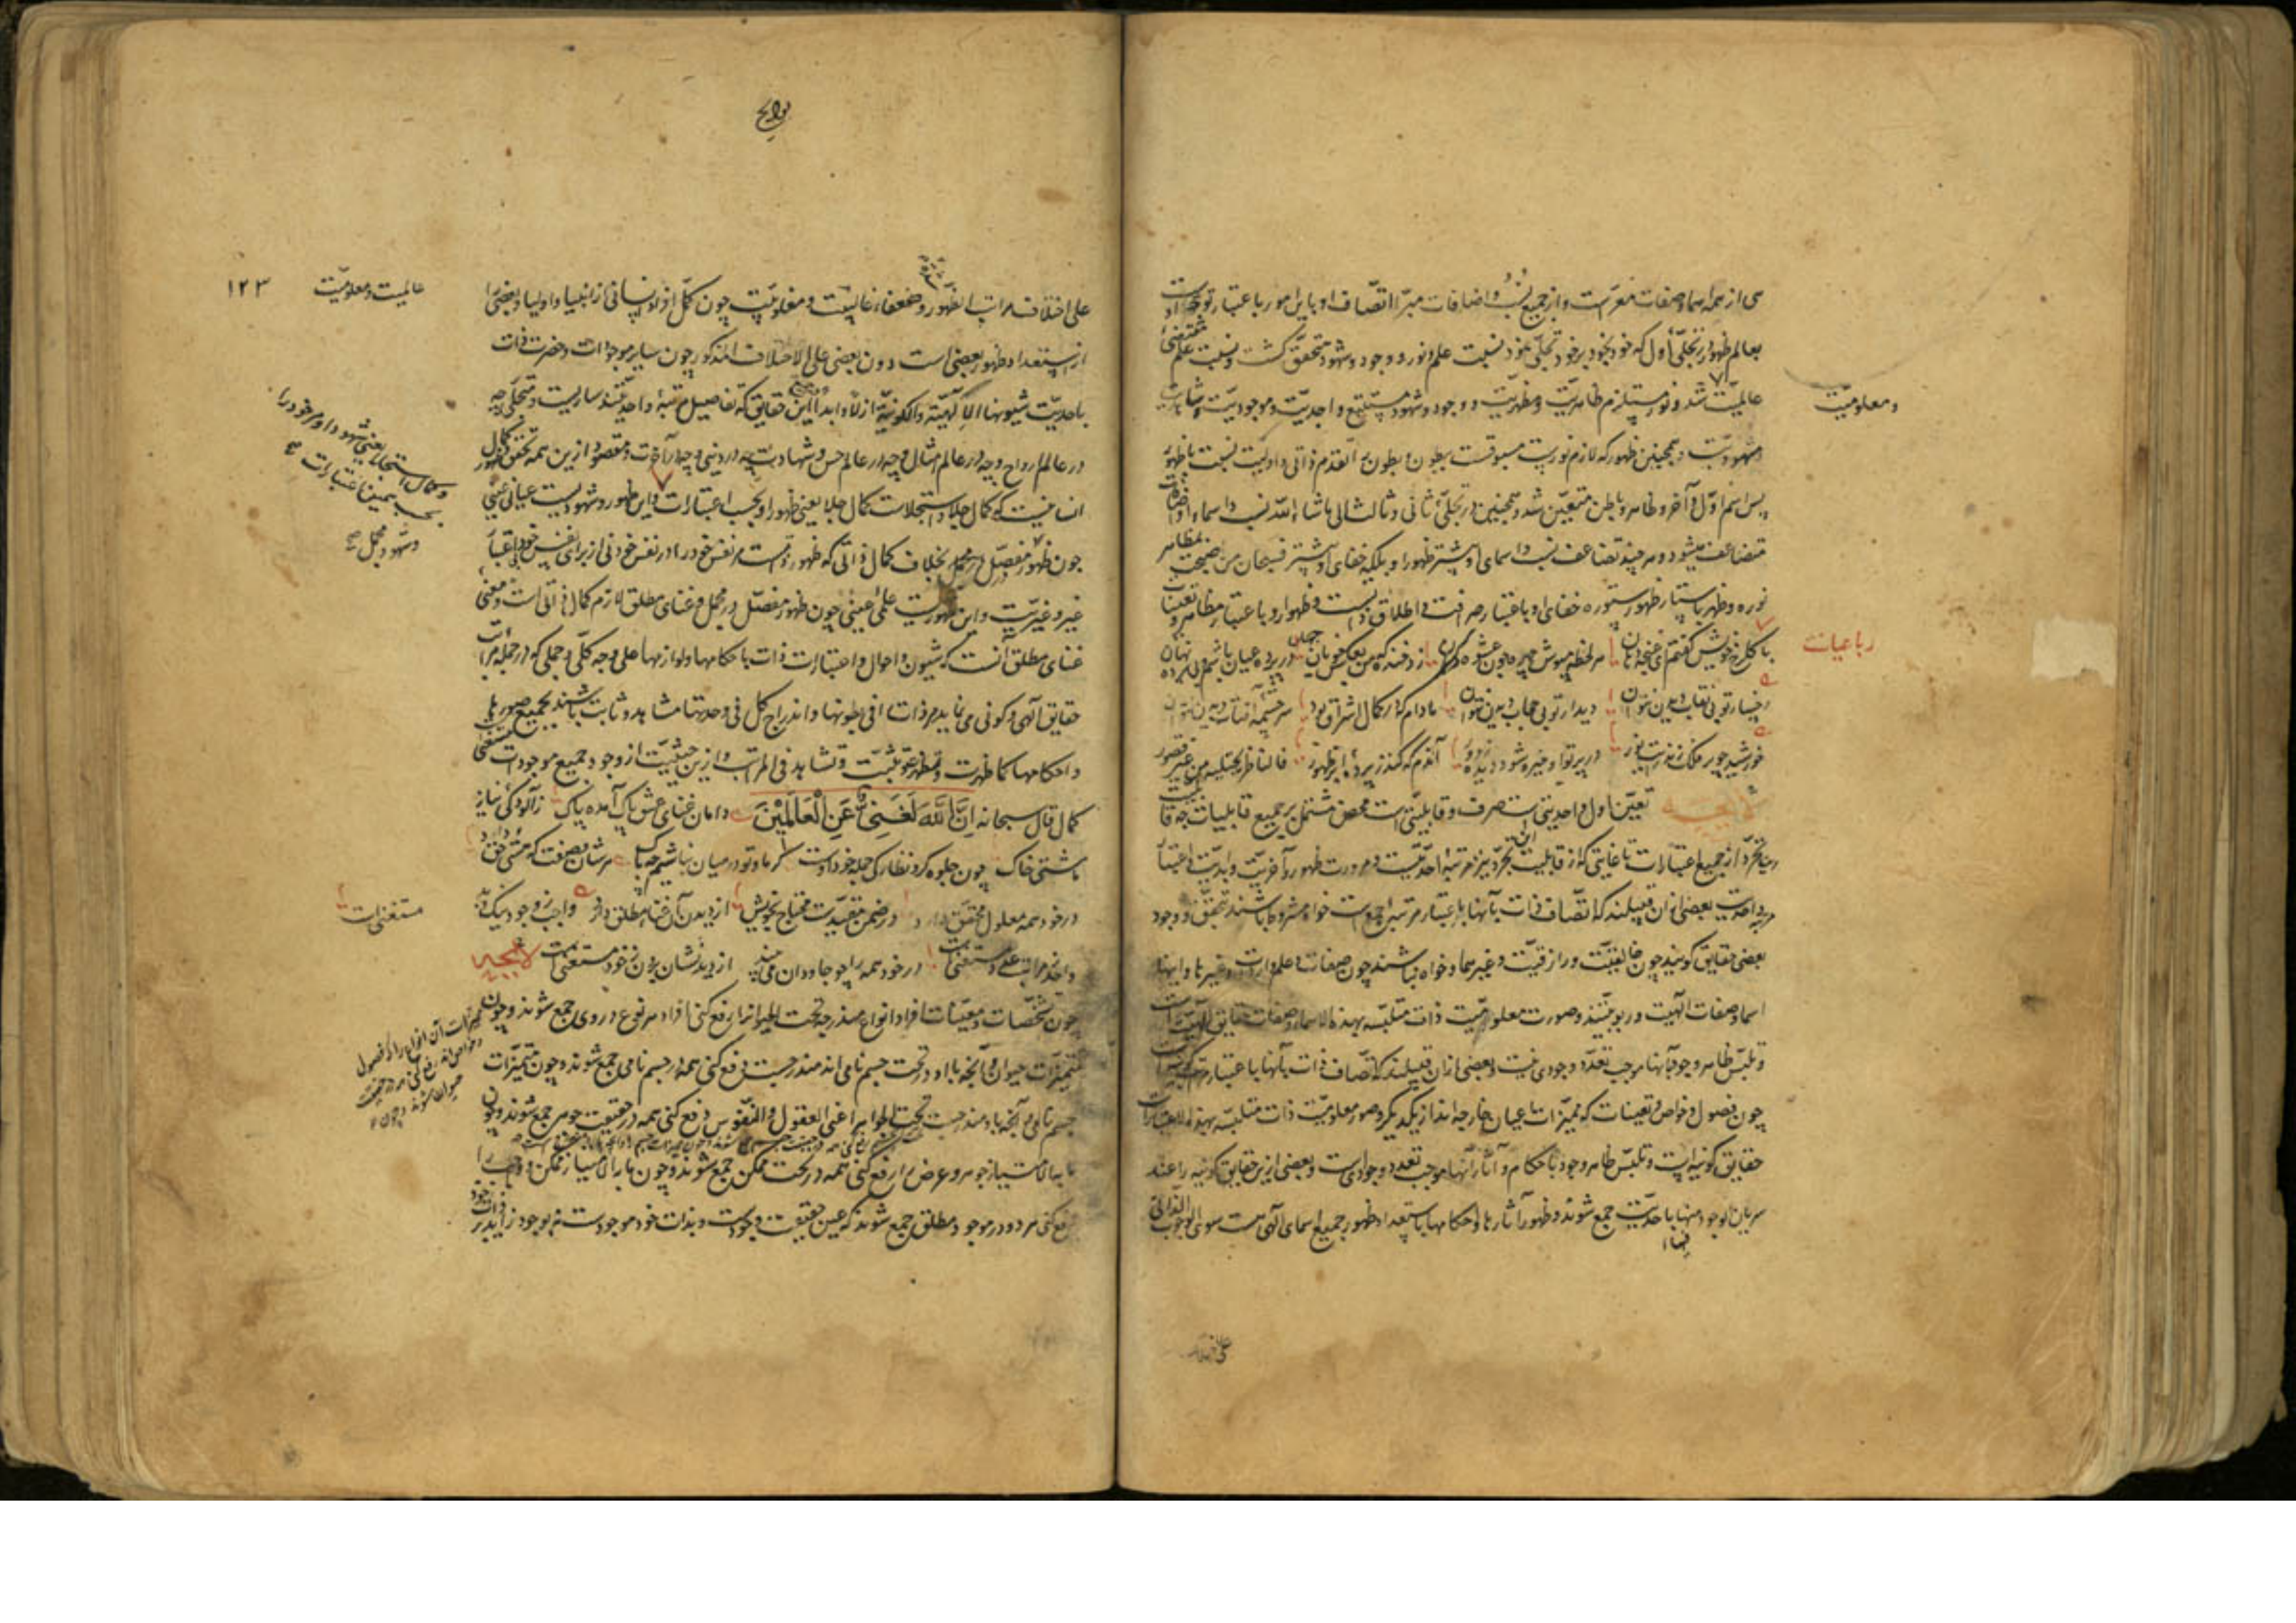 می از همه اسما و صفات معراست و از جمیع نسب و اضافات مبرا اتصاف او باین امور باعتبار توجه اوست
بعالم ظهور در تجلی اول که خود بخود بر خود تجلی نمود نسبت علم و نور و وجود و شهود متحقق گشت و نسبت علم مقتضی
عالمیت شد و نور مستلزم ظاهریت و مظهریت و وجود و شهود مستتبع واجدیت و موجودیت و شاهدیت
و معلومیت
و مشهودیت و همچنین ظهور که لازم نورست مسبوقست ببطون و بطون را تقدم ذاتی و اولیت نسبت با ظهور
پس اسم اول و آخر و ظاهر و باطن متعین شد و همچنین در تجلی ثانی و ثالث الی ماشاء الله نسب و اسماء و اضافات
متضاعف میشود و هر چند تضاعف نسب و اسمای او بیشتر ظهور او بلکه خفای او بیشتر فسبحان من احتجب بمظاهر
نوره و ظهر باستار ظهوره خفای او باعتبار صرافت و اطلاق ذاتست و ظهور او باعتبار مظاهر و تعینات
رباعیات
با گلرخ خویش گفتم ای غنچه دهان هر لحظه مپوش چهره چون عشوه گران زد خنده که من بعکس خوبان جهان در پرده عیان باشم و بی پرده نهان
رخسار تو بی نقاب دیدن نتوان دیدار تو بی حجاب دیدن نتوان مادام که در کمال اشراق بود سرچشمه آفتاب دیدن نتوان
خورشید چو بر فلک زند رایت نور در پرتو او خیره شود دیده ز دور آندم که کند ز پرده ابر ظهور فالناظر یجتلیه من غیر قصور
لایحه تعین اول واحدیتی است صرف و قابلیتی است محض مشتمل بر جمیع قابلیات چه قابلیت
تجرد از جمیع اعتبارات تا غایتی که از قابلیت این تجرد نیز مرتبه احدیتست و مر او راست ظهور و آخریت و ابدیت و اعتبار
مرتبه واحدیت بعضی از آن قبیلند که اتصاف ذات بآنها باعتبار مرتبه جمع است خواه مشروط باشند بتحقق و وجود
بعضی حقایق کونیه چون خالقیت و رازقیت و غیرهما و خواه نباشند چون حیات و علم و ارادت و غیرها و اینها
اسما و صفات الهیت و ربوبیتند و صورت معلومیت ذات متلبسه بهذه الاسماء و الصفات حقایق الهیه است
و تلبس ظاهر وجود بآنها موجب تعدد وجودی نیست و بعضی از آن قبیلند که اتصاف ذات بآنها باعتبار مراتب کونیه است
چون فصول و خواص و تعینات که ممیزات اعیان خارجه اند از یکدیگر و صور معلومیت ذات متلبسه بهذه الاعتبارات
حقایق کونیه است و تلبس ظاهر وجود باحکام و آثار آنها موجب تعدد وجودی است و بعضی ازین حقایق کونیه را عند
سریان الوجود فیها باحدیت جمع شئونه و ظهور آثارها و احکامها استعداد ظهور جمیع اسمای الهی هست سوی الوجوب الذاتی
لوایح
۱۲۳
عالمیت و معلومیت
علی اختلاف مراتب الظهور و ضعفا و غالبیت و مغلوبیت چون کمل افراد انسانی از انبیا و اولیا و بعضی را
استعداد ظهور بعضی است دون بعضی علی الاختلاف المذکور چون سایر موجودات و حضرت ذات
باحدیت شئونها الالهیة و الکونیة ازلا و ابدا در جمیع این حقایق که تفاصیل مرتبه واحدیتند ساریست و متجلی چه
در عالم ارواح و چه در عالم مثال و چه در عالم حس و شهادت چه در دنیی و چه در آخرت و مقصود ازین همه تحقق و ظهور کمال
اسمائیست که کمال جلا و استجلاست کمال جلا یعنی ظهور او بحسب اعتبارات و این ظهور و شهودیست عیانی عینی
و کمال استجلا یعنی شهود او مر خود را
بحسب همین اعتبارات صح
چون ظهور مفصل در مجمل بخلاف کمال ذاتی که ظهور ذاتست مر نفس خود را در نفس خود نی از برای نفس خود باعتبار
و شهود مجمل صح
غیر و غیریت و این ظهوریست علمی غیبی چون ظهور مفصل در مجمل و غنای مطلق لازم کمال ذاتی است و معنی
غنای مطلق آنست که شیون و احوال و اعتبارات ذات باحکامها و لوازمها علی وجه کلی جملی که در جمله مراتب
حقایق الهی و کونی می نماید مر ذات را فی بطونها و اندراج کل فی وحدتها مشاهد و ثابت باشند بجمیع صورها
و احکامها کما ظهرت و تظهر و تثبت و تشاهد فی المراتب و ازین حیثیت از وجود جمیع موجودات مستغنی است
کمال قال سبحانه إِنَّ اللَّهَ لَغَنِیٌّ عَنِ الْعَالَمِیْنَ دامان غنای عشق پاک آمده پاک ز آلودگی نیاز
با مشتی خاک چون جلوه گر و نظارگی جمله خود اوست گر ما و تو در میان نباشیم چه باک هر شان و صفت که هستی حق دارد
در خود همه معلوم و محقق دارد در ضمن مقیدات محتاج بخویش از دیدن آن غناء مطلق دارد واجب ز وجود نیک و بد
مستغنیست
واحد ز مراتب عدد مستغنیست در خود همه را چو جاودان می بیند از دیدنشان برون ز خود مستغنیست لایحه
چون تشخصات و تعینات افراد انواع مندرجه تحت الحیوان را رفع کنی افراد هر نوع در وی جمع شوند و چون
ممیزات آن انواع را که فصول
و خواص اند رفع کنی همه در حقیقت
حیوان جمع شوند و چون
ممیزات حیوان و آنچه با او در تحت جسم نامی اند مندرجست رفع کنی همه در جسم نامی جمع شوند و چون ممیزات
جسم نامی و آنچه با او مندرجست تحت الجوهر اعنی العقول و النفوس رفع کنی همه در حقیقت جوهر جمع شوند و چون
ما به الامتیاز جوهر و عرض را رفع کنی همه در تحت ممکن جمع شوند و چون ما به الامتیاز ممکن و واجب را
رفع کنی هر دو در موجود مطلق جمع شوند که عین حقیقت وجودست و بذات خود موجودست نه بوجود زاید بر ذات خود